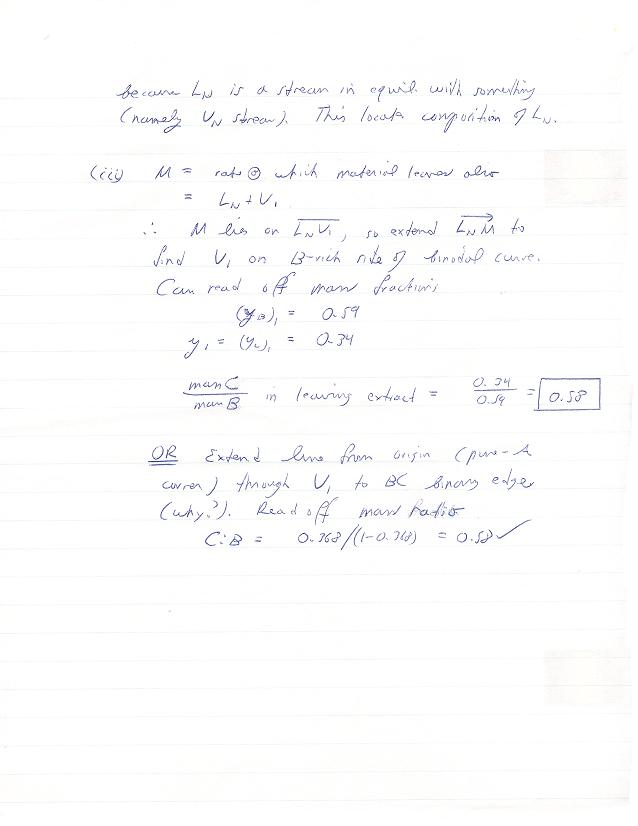 because L_N is a stream in equil. with something
(namely V_N stream). This locates composition of L_N.
(iii) M = rate @ which material leaves also
= L_N + V_1
∴ M lies on L_N V_1, so extend L_N M to
find V_1 on B-rich side of binodal curve.
Can read off mass fractions
(y_B)_1 = 0.59
y_1 = (y_C)_1 = 0.34
mass C / mass B in leaving extract = 0.34 / 0.59 = 0.58
OR Extend line from origin (pure-A
corner) through V_1 to BC binary edge
(why?). Read off mass ratio
C:B = 0.368/(1-0.368) = 0.58 ✓